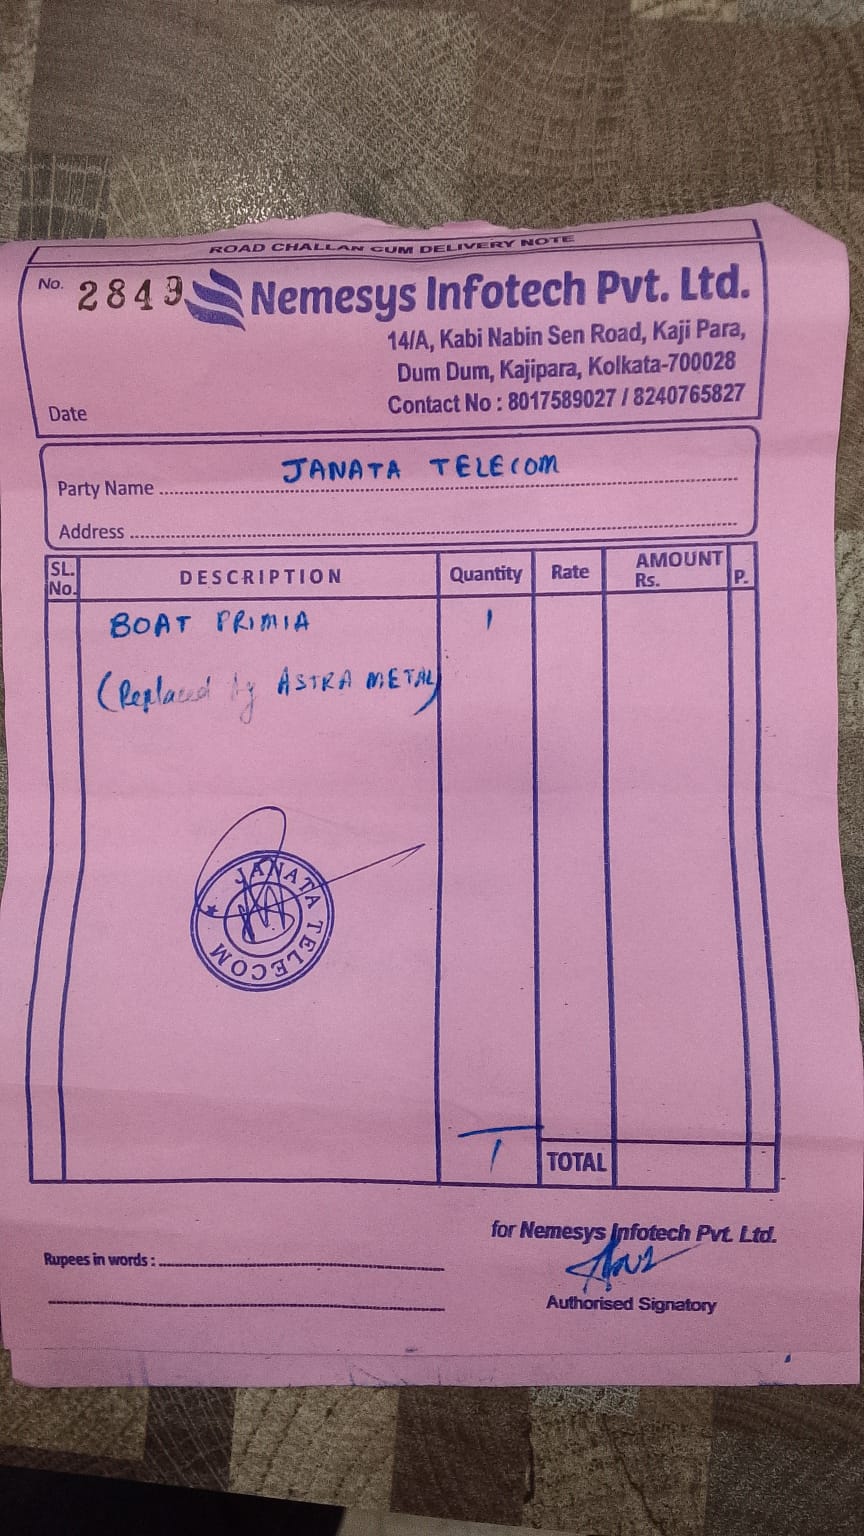 ROAD CHALLAN CUM DELIVERY NOTE
No. 2849
Nemesys Infotech Pvt. Ltd.
14/A, Kabi Nabin Sen Road, Kaji Para,
Dum Dum, Kajipara, Kolkata-700028
Contact No : 8017589027 / 8240765827
Date
Party Name JANATA TELECOM
Address
SL. No. DESCRIPTION Quantity Rate AMOUNT Rs. P.
BOAT PRIMIA 1
(Replaced by ASTRA METAL)
JANATA TELECOM
1 TOTAL
for Nemesys Infotech Pvt. Ltd.
Rupees in words :
Authorised Signatory